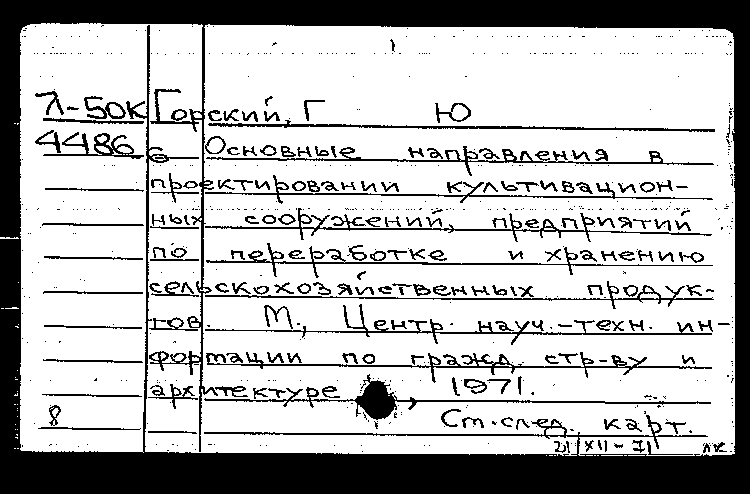 Л-50К Горский, Г Ю
4486 б Основные направления в
проектировании культивацион-
ных сооружений, предприятий
по переработке и хранению
сельскохозяйственных продук-
тов. М., Центр. науч.-техн. ин-
формации по гражд. стр-ву и
архитектуре, 1971.
8 См. след. карт.
21/XII-71